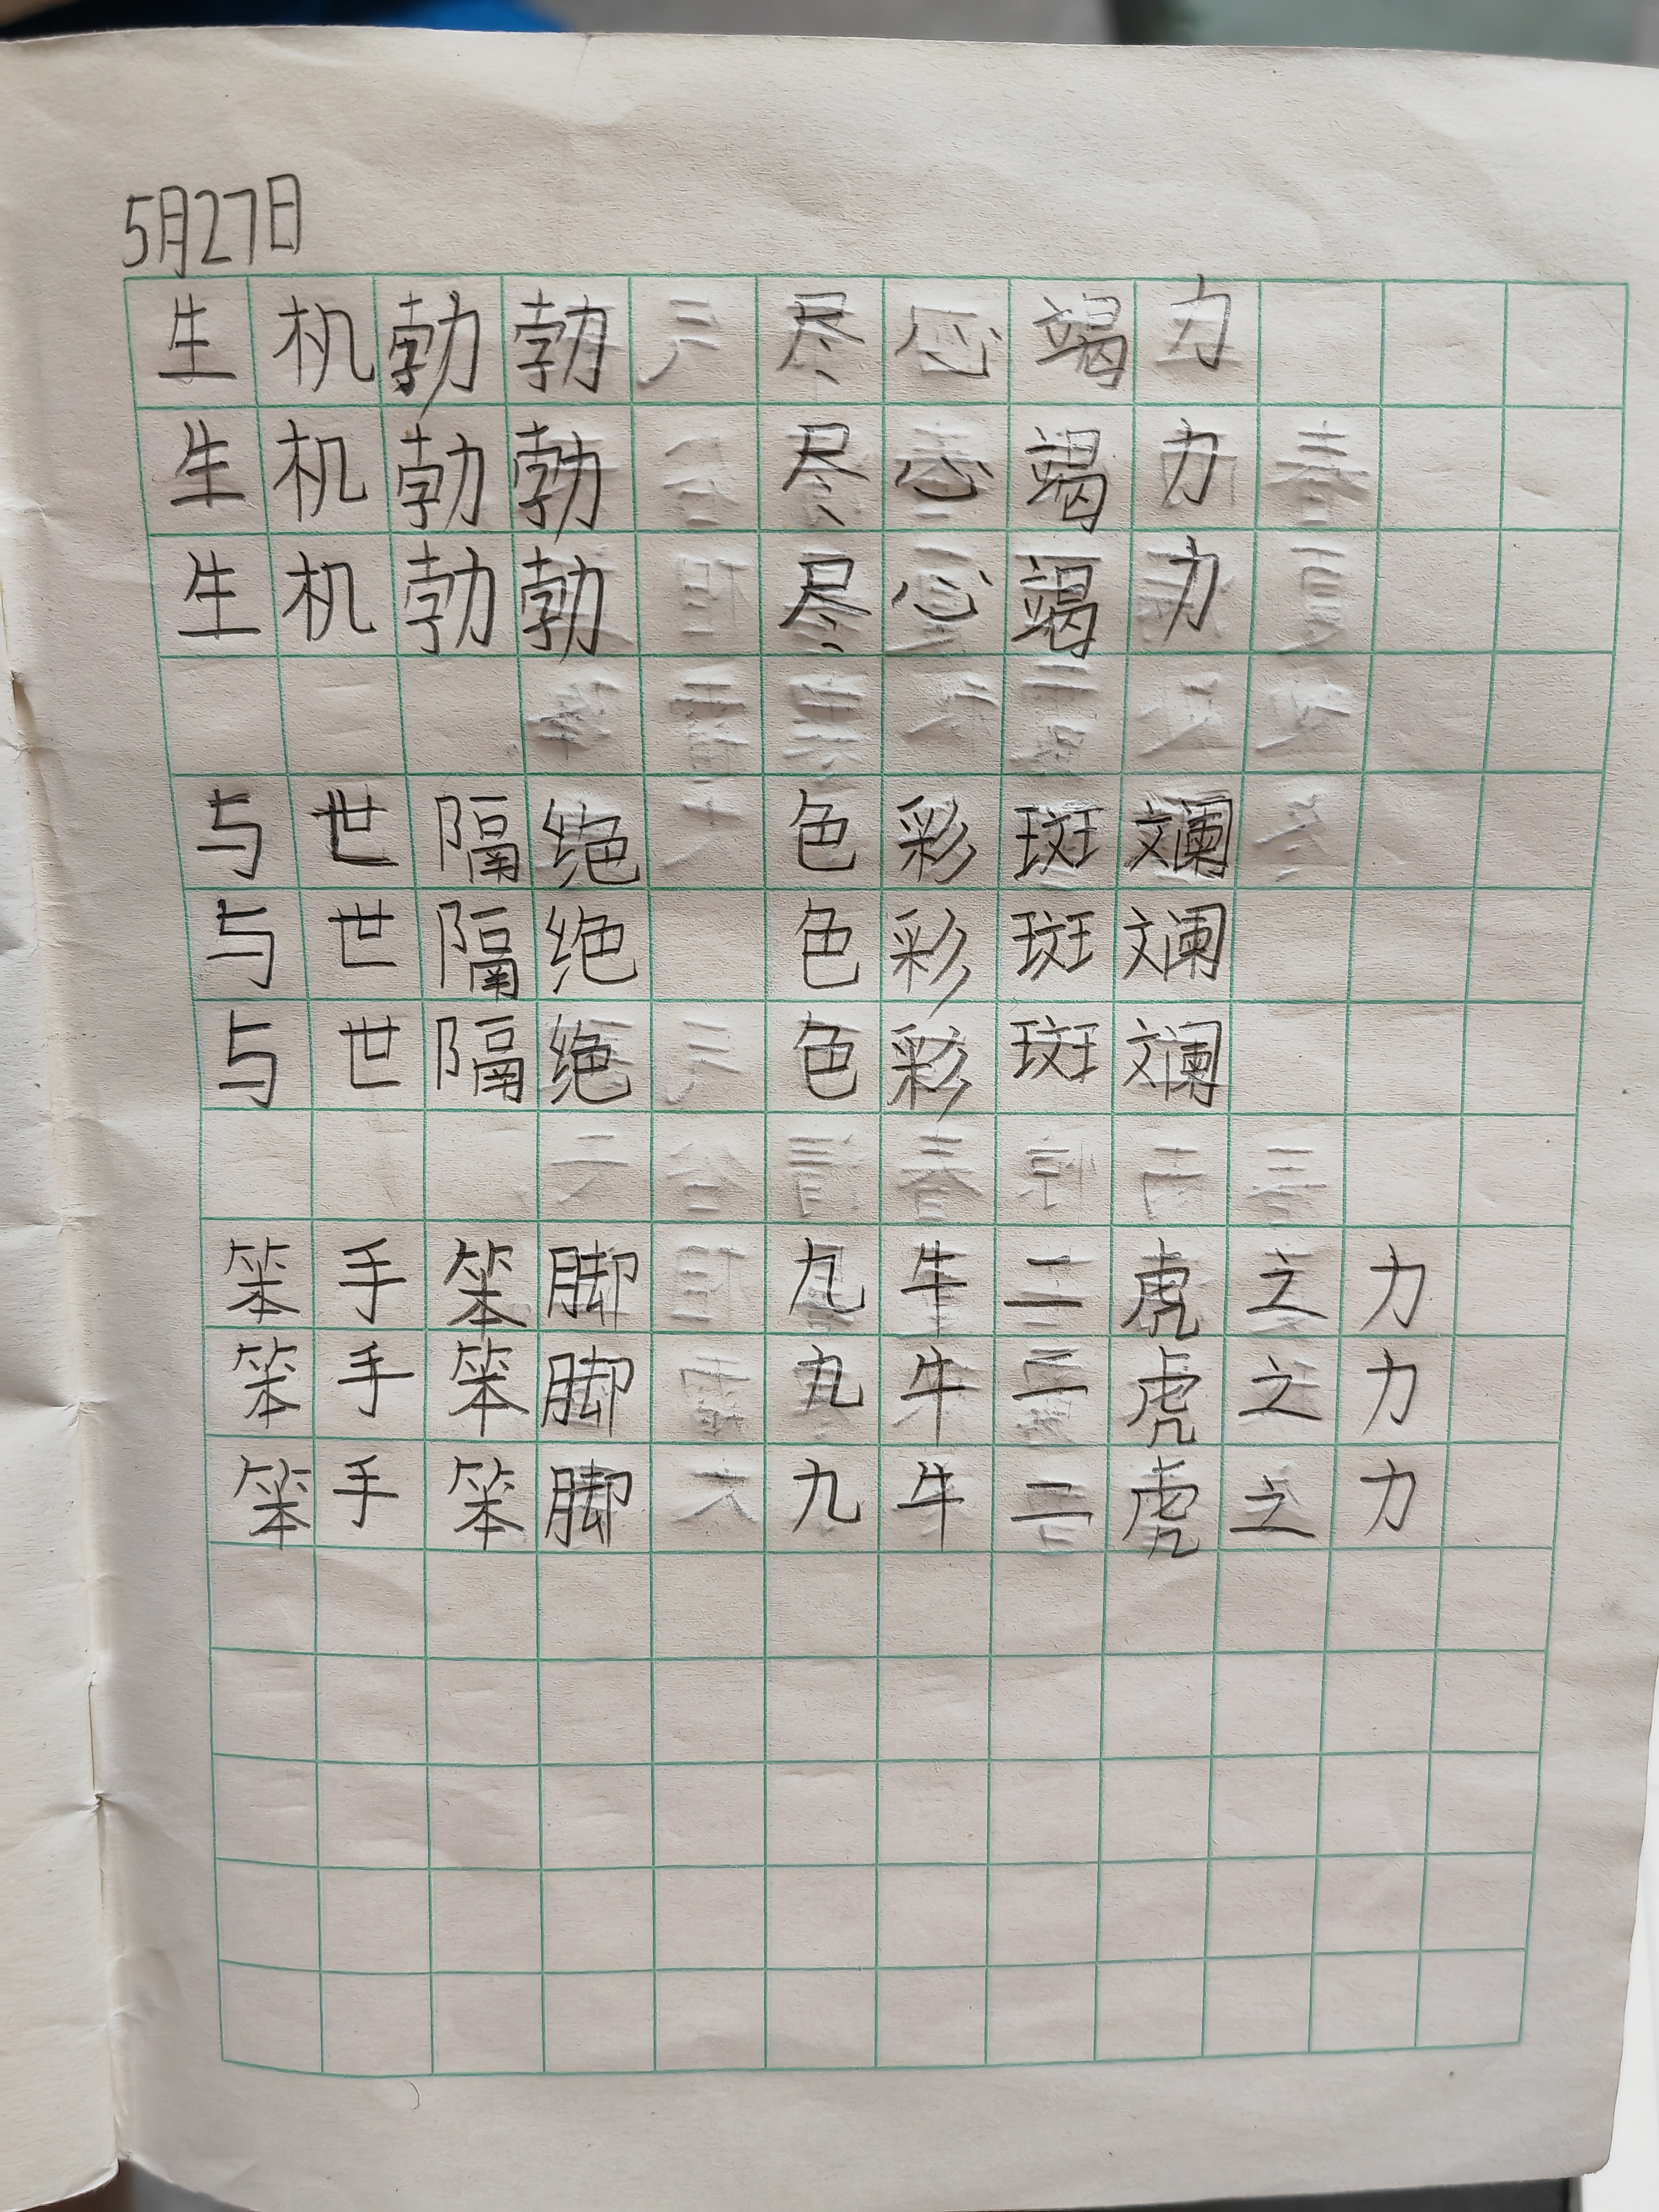 5月27日
生机勃勃 尽心竭力
生机勃勃 尽心竭力
生机勃勃 尽心竭力
与世隔绝 色彩斑斓
与世隔绝 色彩斑斓
与世隔绝 色彩斑斓
笨手笨脚 九牛二虎之力
笨手笨脚 九牛二虎之力
笨手笨脚 九牛二虎之力